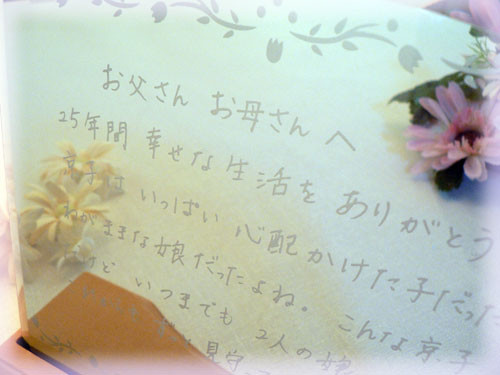 お父さん お母さん へ
25年間 幸せな 生活を ありがとう
京子は いっぱい 心配 かけた 子だった
わがままな 娘だったよね。 こんな 京子
けど いつまでも 2人の 娘
見守